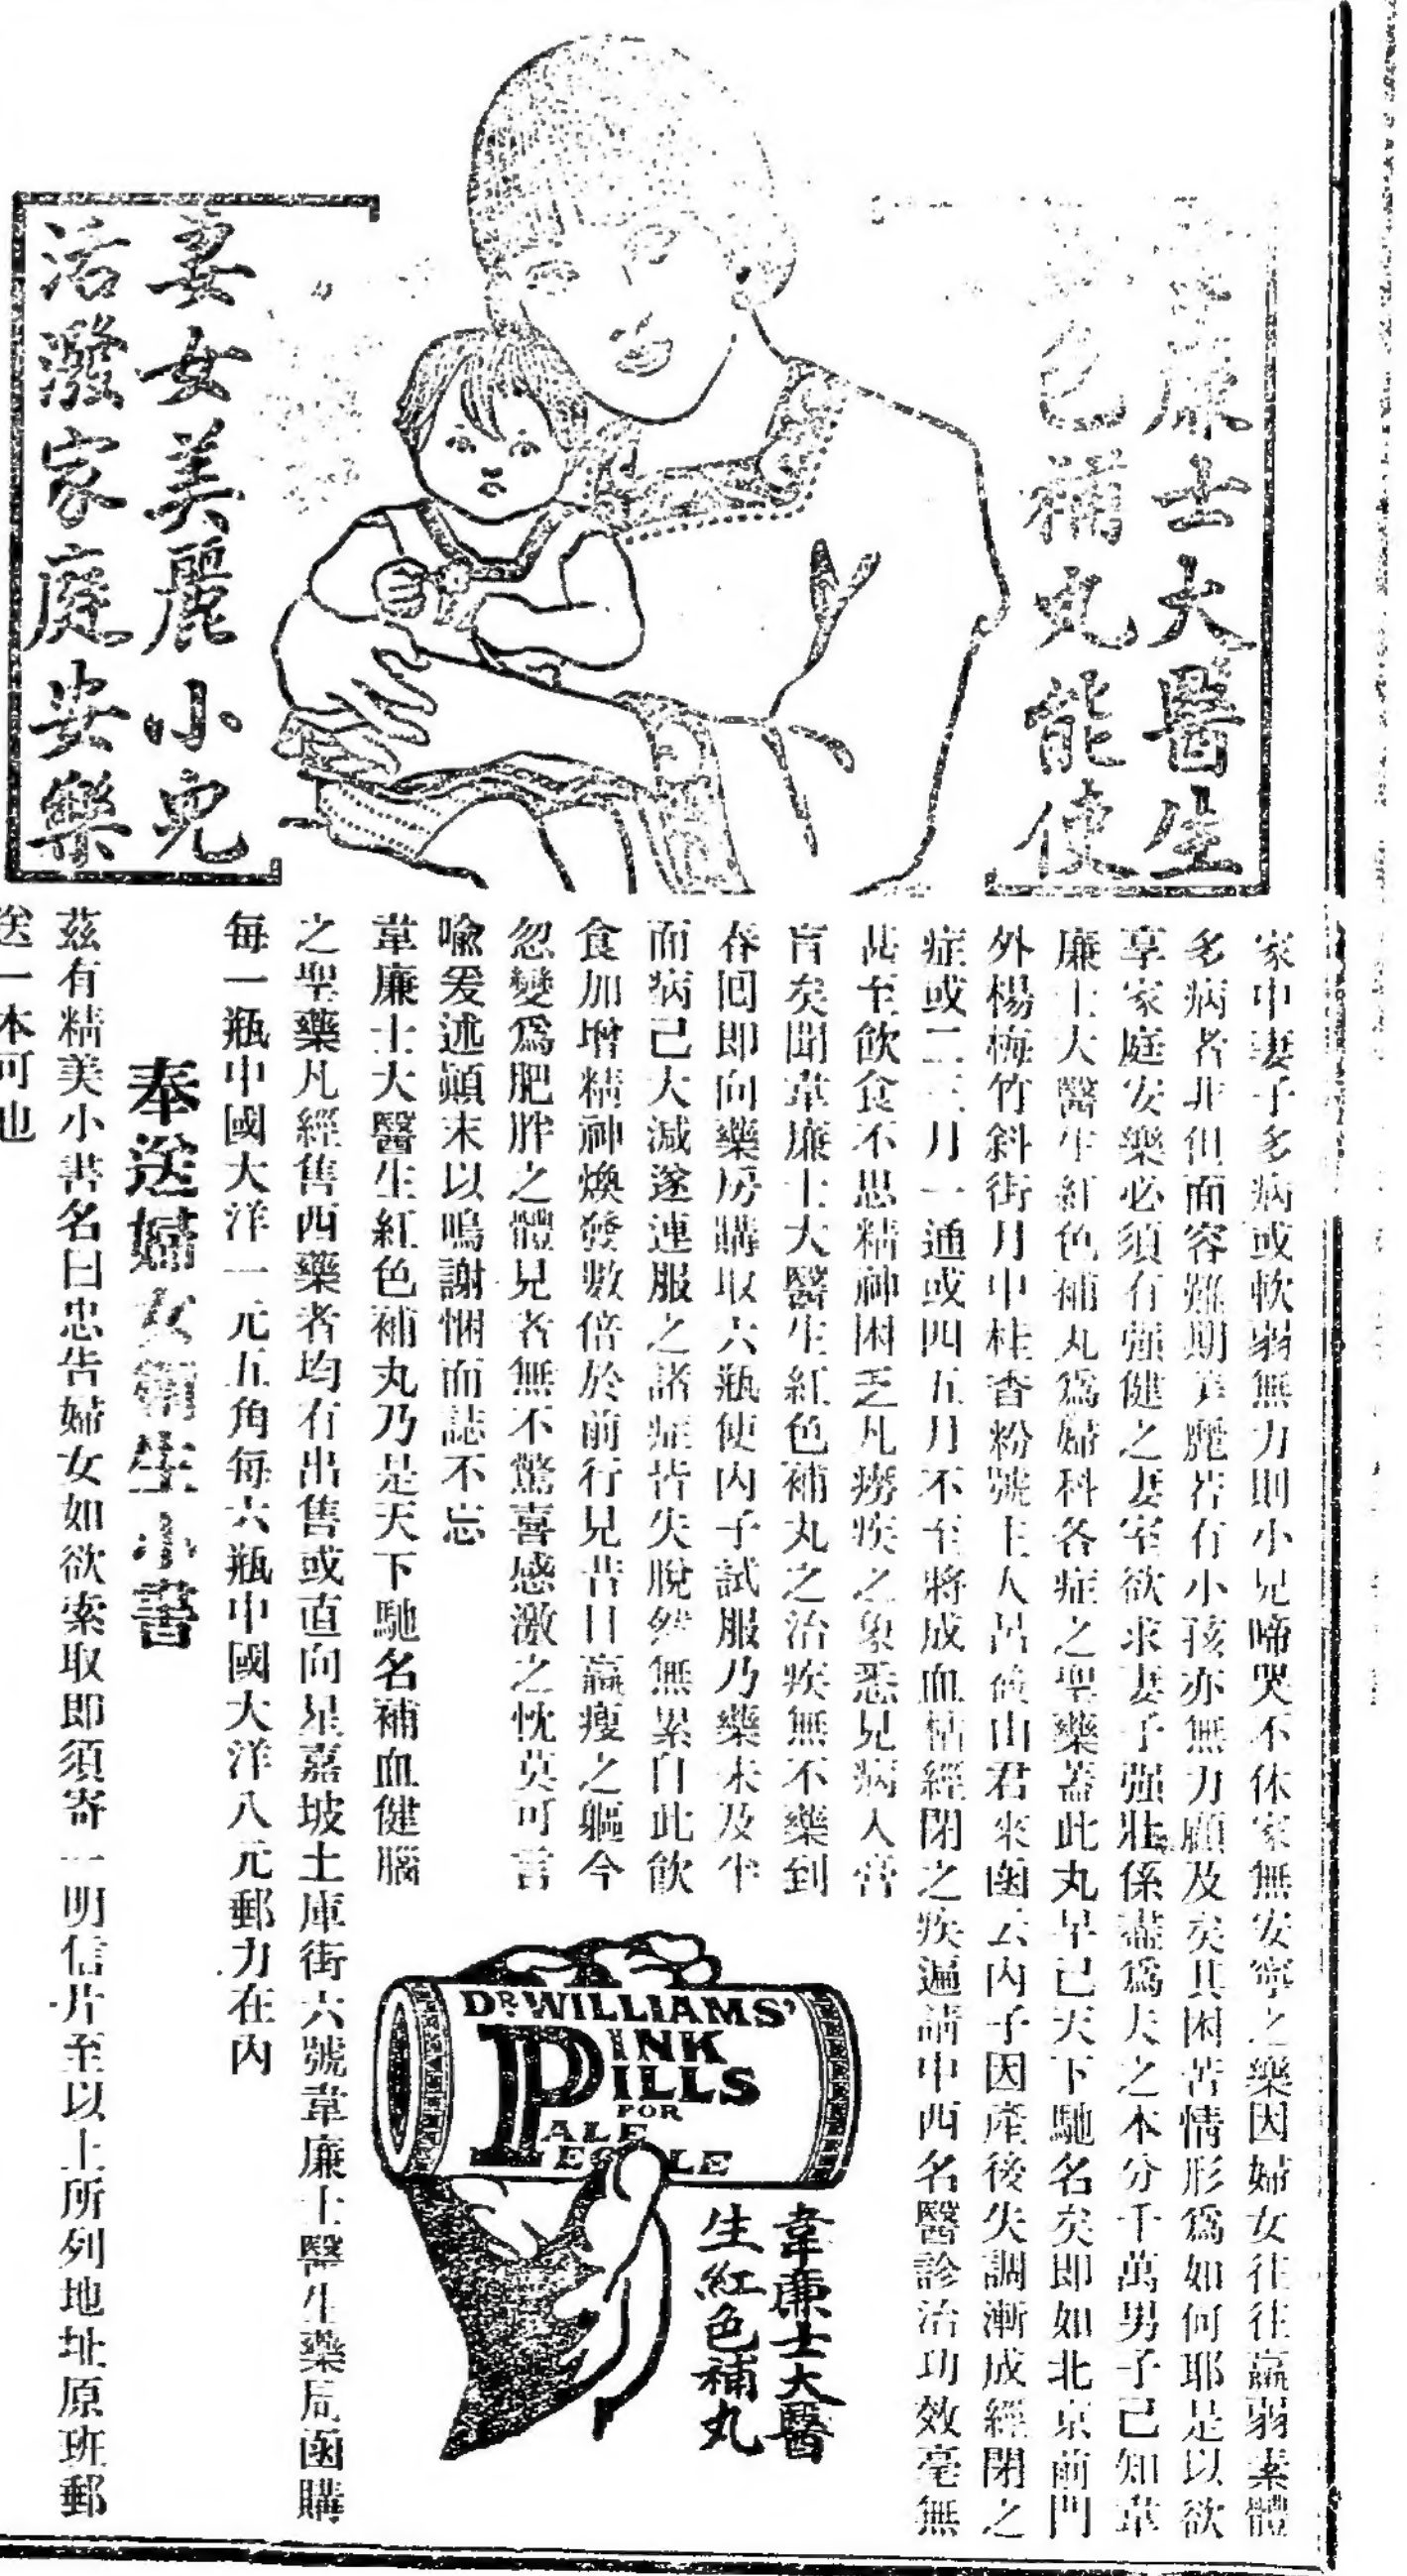 廉士大醫生
色補丸能使
妻女美麗小兒
活潑家庭安樂
家中妻子多病或軟弱無力則小兒啼哭不休家無安寧之樂因婦女往往羸弱素體
多病者非但面容難期美麗若有小孩亦無力顧及矣其困苦情形爲如何耶是以欲
享家庭安樂必須有强健之妻室欲求妻子强壯係盡爲夫之本分千萬男子已知韋
廉士大醫生紅色補丸爲婦科各症之聖藥蓋此丸早已天下馳名矣即如北京前門
外楊梅竹斜街月中桂香粉號主人呂俊山君來函云內子因產後失調漸成經閉之
症或二三月一通或四五月不至將成血枯經閉之疾遍請中西名醫診治功效毫無
甚至飲食不思精神困乏凡癆疾之象悉見病入膏
肓矣聞韋廉士大醫生紅色補丸之治疾無不藥到
春回即向藥房購取六瓶使內子試服乃藥未及半
而病已大減遂連服之諸症皆失脫然無累自此飲
食加增精神煥發數倍於前行見昔日羸瘦之軀今
忽變爲肥胖之體見者無不驚喜感激之忱莫可言
喩爰述顚末以鳴謝悃而誌不忘
韋廉士大醫生紅色補丸乃是天下馳名補血健腦
之聖藥凡經售西藥者均有出售或直向星嘉坡土庫街六號韋廉士醫生藥局函購
每一瓶中國大洋一元五角每六瓶中國大洋八元郵力在內
奉送婦女衛生小書
茲有精美小書名曰忠告婦女如欲索取即須寄一明信片至以上所列地址原班郵
送一本可也
DR WILLIAMS'
PINK
PILLS
FOR
PALE
PEOPLE
韋廉士大醫
生紅色補丸